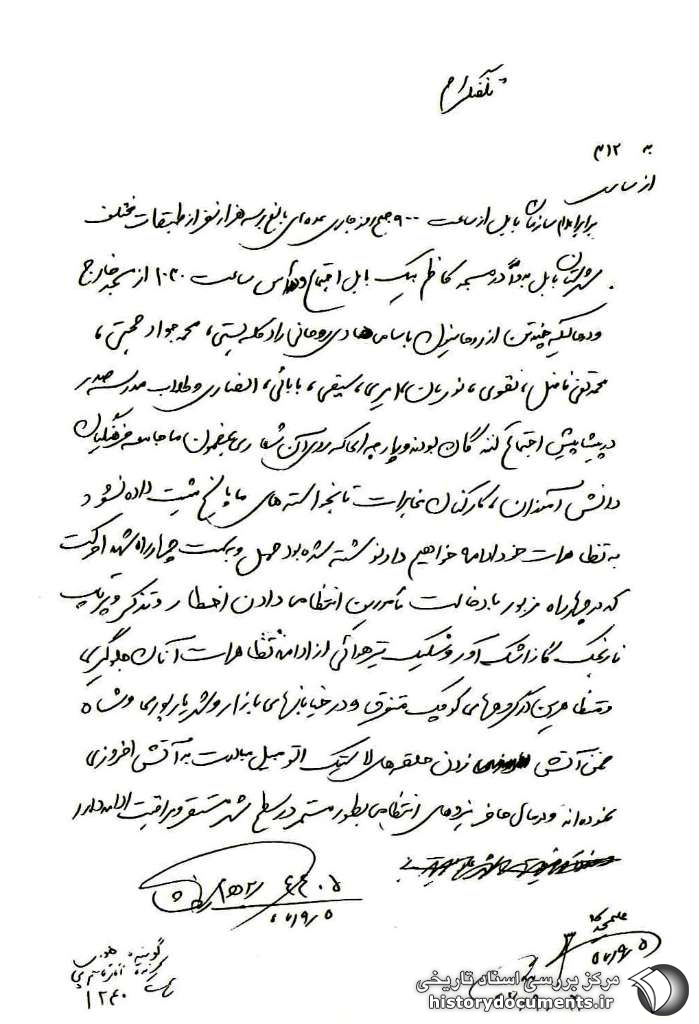 تلفنگرام
به ۳۱۲
از ساری
برابر اعلام سازمان بابل از ساعت ۹۰۰ صبح روز جاری عده‌ای بالغ بر سه هزار نفر از طبقات مختلف
شهرستان بابل در مسجد کاظم بیک بابل اجتماع و رأس ساعت ۱۰۳۰ از مسجد خارج
و در حالیکه چند تن از روحانیون با سامی هادی روحانی راد کله بستی، محمد جواد حجتی،
محمد تقی فاضل، نقوی، نوریان، امیری، سیفی، بابائی، انصاری و طلاب مدرسه صدر
در پیشاپیش اجتماع کننده گان بودند و پارچه ای که روی آن شعاری بمضمون ما جامعه فرهنگیان
دانش آموزان، کارکنان مخابرات تا بخواسته های ما پاسخ مثبت داده نشود
به تظاهرات خود ادامه خواهیم داد نوشته شده بود حمل و بسمت چهارراه شهدا حرکت
که در چهارراه مزبور با دخالت مأمورین انتظامی دادن اخطار و تذکر و پرتاب
نارنجک گاز اشک آور و شلیک تیر هوائی از ادامه تظاهرات آنان جلوگیری
و متظاهرین در گروههای کوچک متفرق و در خیابانهای بازار و شهریارپوری و شاه
ضمن آتش زدن حلقه های لاستیک اتومبیل مبادرت به آتش افروزی
نموده اند و در حال حاضر نیروهای انتظامی بطور مستمر در سطح شهر مستقر و مراقبت ادامه دارد
۵۷/۹/۵
۵۷/۹/۵
گوینده
گیرنده
ساعت ۱۲۴۰
مرکز بررسی اسناد تاریخی
historydocuments.ir